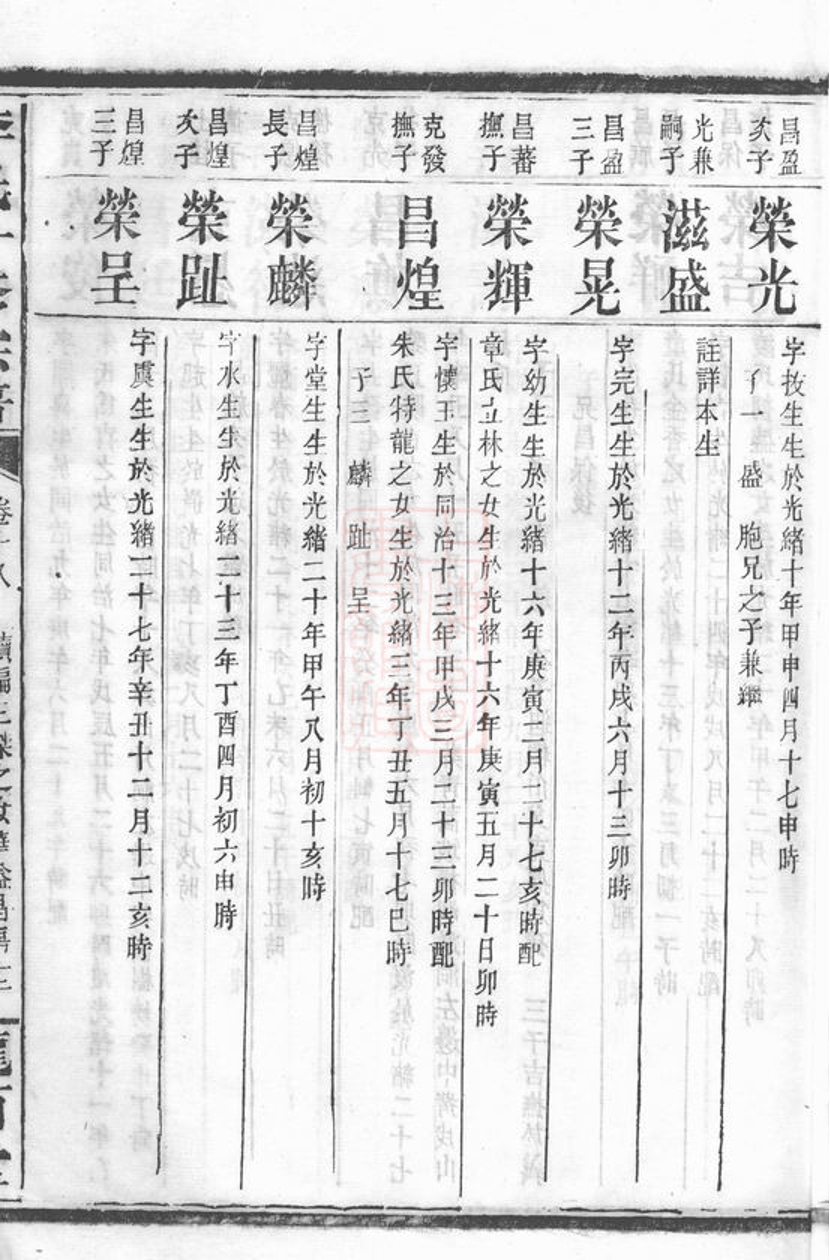 昌盈
次子
榮光
字技生生於光緒十年甲申四月十七申時
子一 盛 胞兄之子兼繼
光兼
嗣子
滋盛
註詳本生
昌盈
三子
榮晃
字完生生於光緒十二年丙戌六月十三卯時
昌蕃
撫子
榮輝
字幼生生於光緒十六年庚寅二月二十七亥時配
章氏立林之女生於光緒十六年庚寅五月二十日卯時
克發
撫子
昌煌
字懷玉生於同治十三年甲戌三月二十三卯時配
朱氏特龍之女生於光緒三年丁丑五月十七巳時
子三 麟 趾 呈
昌煌
長子
榮麟
字堂生生於光緒二十年甲午八月初十亥時
昌煌
次子
榮趾
字水生生於光緒二十三年丁酉四月初六申時
昌煌
三子
榮呈
字虞生生於光緒二十七年辛丑十二月十二亥時